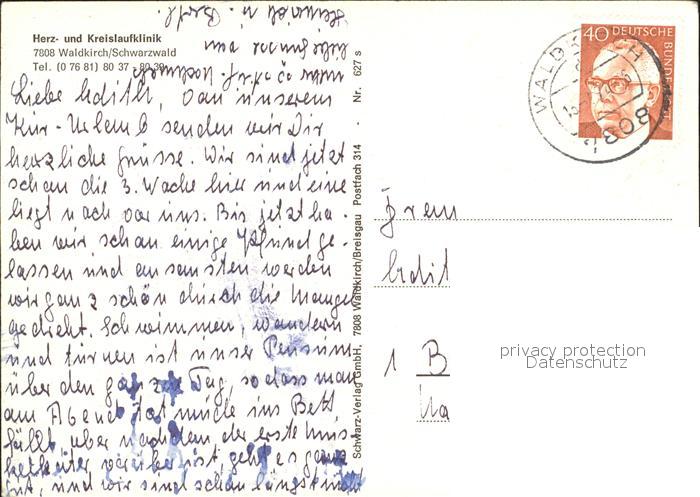 Herz- und Kreislaufklinik
7808 Waldkirch/Schwarzwald
Tel. (0 76 81) 80 37 - 80 39
Liebe Edith, von unserem
Kur-Urlaub senden wir Dir
herzliche Grüsse. Wir sind jetzt
schon die 3. Woche hier und eine
liegt noch vor uns. Bis jetzt ha-
ben wir schon einige Pfund ge-
lassen und ansonsten werden
wir ganz schön durch die Mangel
gedreht. Schwimmen, wandern
und turnen ist unser Pensum
über den ganzen Tag, sodass man
am Abend tot müde ins Bett
fällt, aber nachdem der erste Mus-
kelkater vorüber ist, geht es ganz
gut, und wir sind schon längst nicht
Heinrich u.
Schwarz-Verlag GmbH, 7808 Waldkirch/Breisgau Postfach 314 Nr. 627 s
40 DEUTSCHE BUNDESPOST
WALDKIRCH
808
Frau
Edit
1 B
privacy protection
Datenschutz